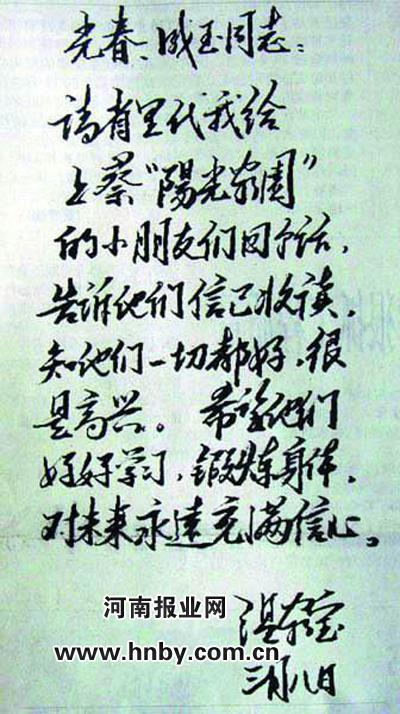 光春、成玉同志:
请省里代我给
上蔡“陽光家園”
的小朋友们回个话,
告诉他们信已收读,
知他们一切都好,很
是高兴。希望他们
好好学习,锻炼身体,
对未来永远充满信心。
温家宝
三月八日
河南报业网
www.hnby.com.cn